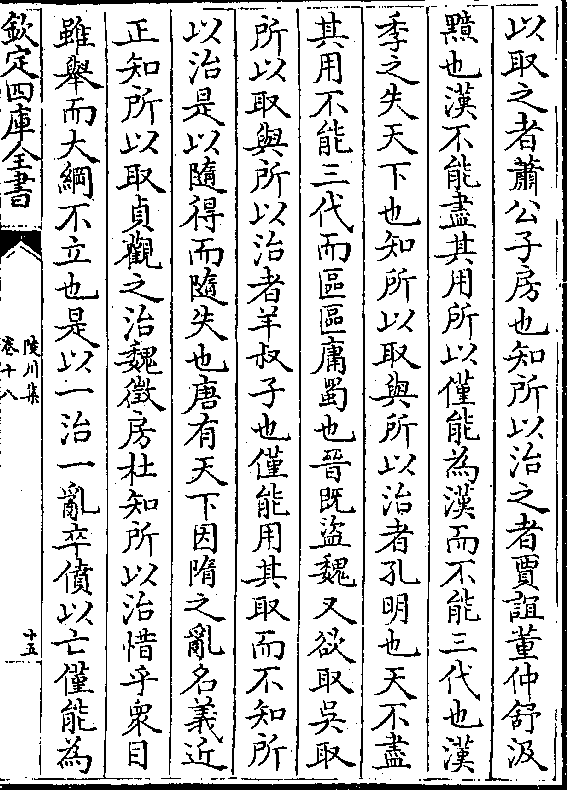 以取之者蕭公子房也知所以治之者賈誼董仲舒汲
黯也漢不能盡其用所以僅能為漢而不能三代也漢
季之失天下也知所以取與所以治者孔明也天不盡
其用不能三代而區區庸蜀也晉既盜魏又欲取吳取
所以取與所以治者羊叔子也僅能用其取而不知所
以治是以隨得而隨失也唐有天下因隋之亂名義近
正知所以取貞觀之治魏徵房杜知所以治惜乎衆目
雖舉而大綱不立也是以一治一亂卒僨以亡僅能為
欽定四庫全書
陵川集
卷十八
十五